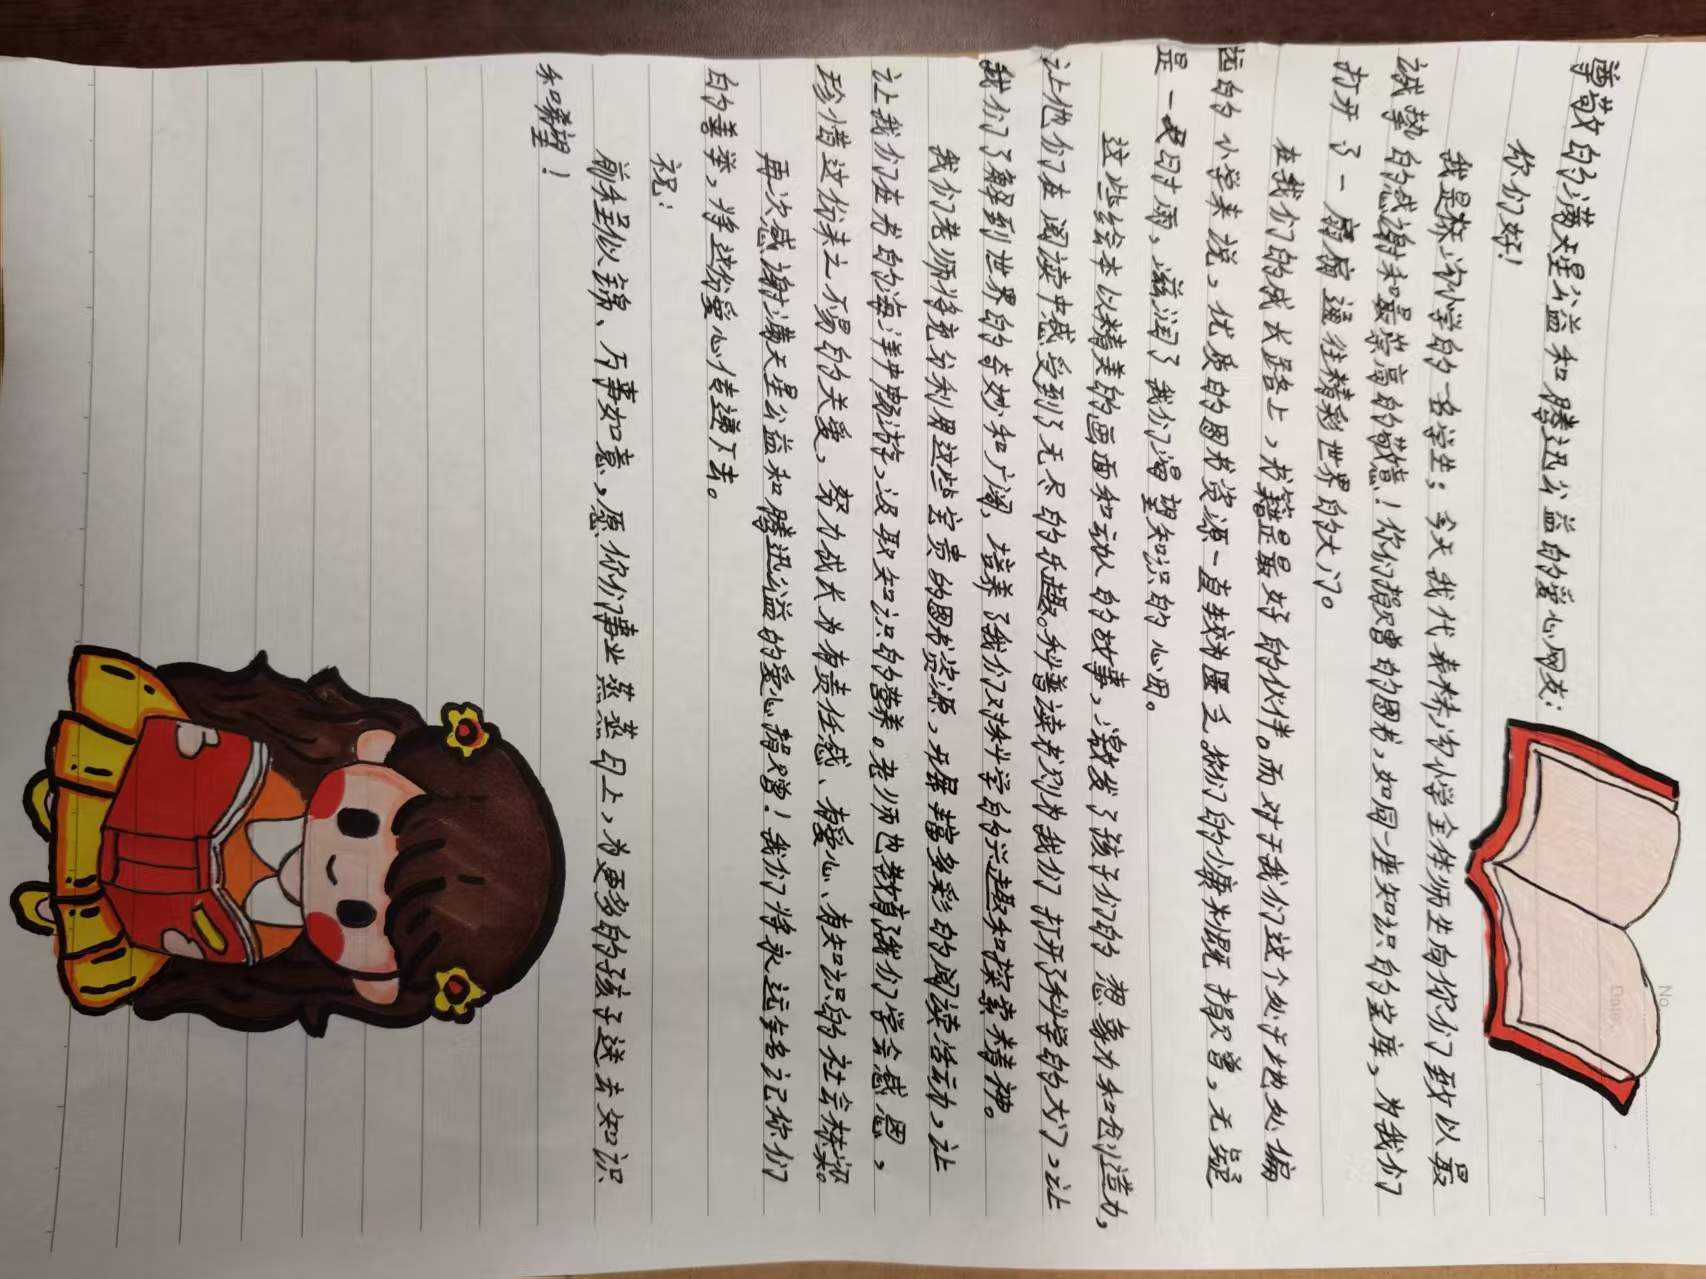 No.
Date.
尊敬的满天星公益和腾迅公益的爱心网友:
你们好!
我是林沟小学的一名学生,今天我代表林沟小学全体师生向你们致以最
诚挚的感谢和最崇高的敬意!你们捐赠的图书,如同一座知识的宝库,为我们
打开了一扇扇通往精彩世界的大门。
在我们的成长路上,书籍是最好的伙伴。而对于我们这个处于地处偏
远的小学来说,优质的图书资源一直较为匮乏。你们的慷慨捐赠,无疑
是一场及时雨,滋润了我们渴望知识的心田。
这些绘本以精美的画面和动人的故事,激发了孩子们的想象力和创造力,
让他们在阅读中感受到了无尽的乐趣。科普读物则为我们打开了科学的大门,让
我们了解到世界的奇妙和广阔,培养了我们对科学的兴趣和探索精神。
我们老师将充分利用这些宝贵的图书资源,开展丰富多彩的阅读活动,让
让我们在书的海洋中畅游,汲取知识的营养。老师也教育我们学会感恩,
珍惜这份来之不易的关爱,努力成长为有责任感、有爱心、有知识的社会栋梁。
再次感谢满天星公益和腾迅公益的爱心捐赠!我们将永远铭记你们
的善举,将这份爱心传递下去。
祝:
前程似锦、万事如意,愿你们事业蒸蒸日上,为更多的孩子送去知识
和希望!